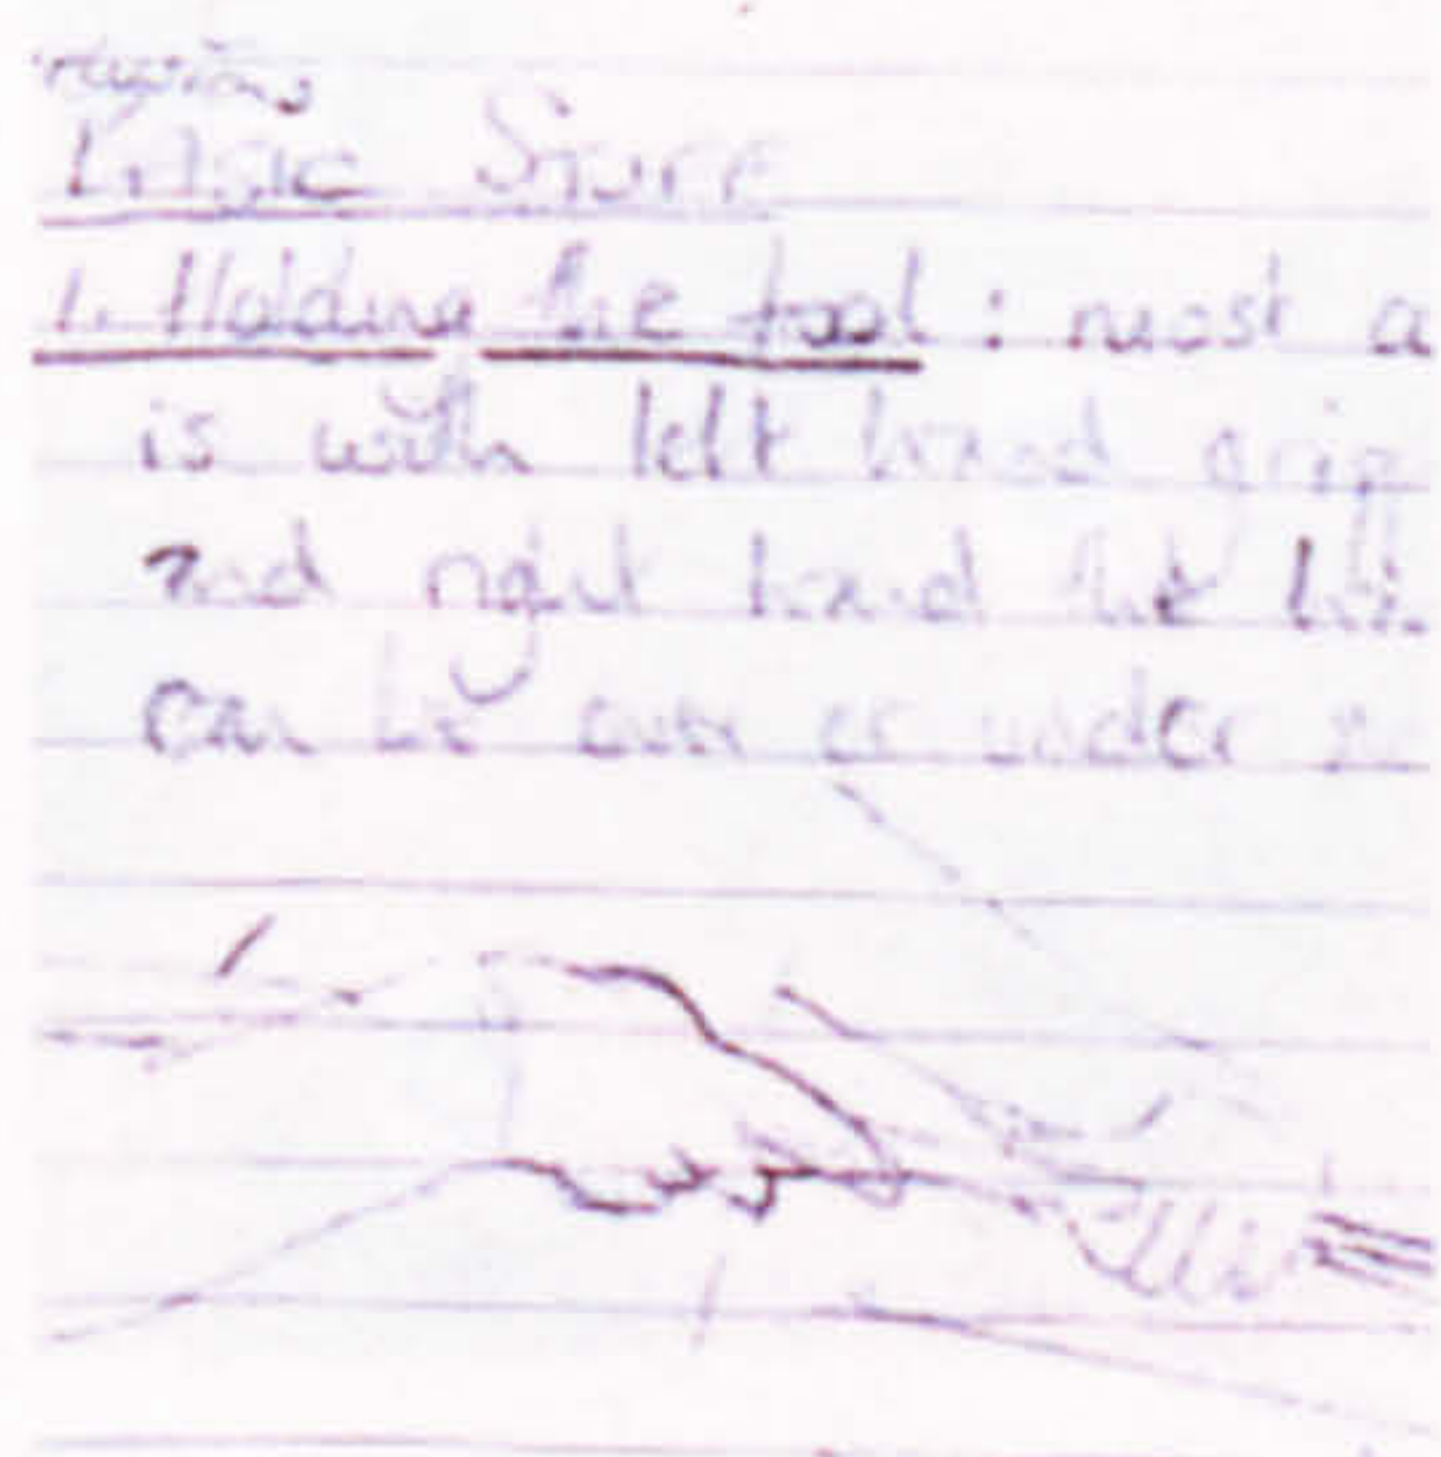 Stuff
1. Holding the tool : most a
is with left hand grip
and right hand the
can be over or under